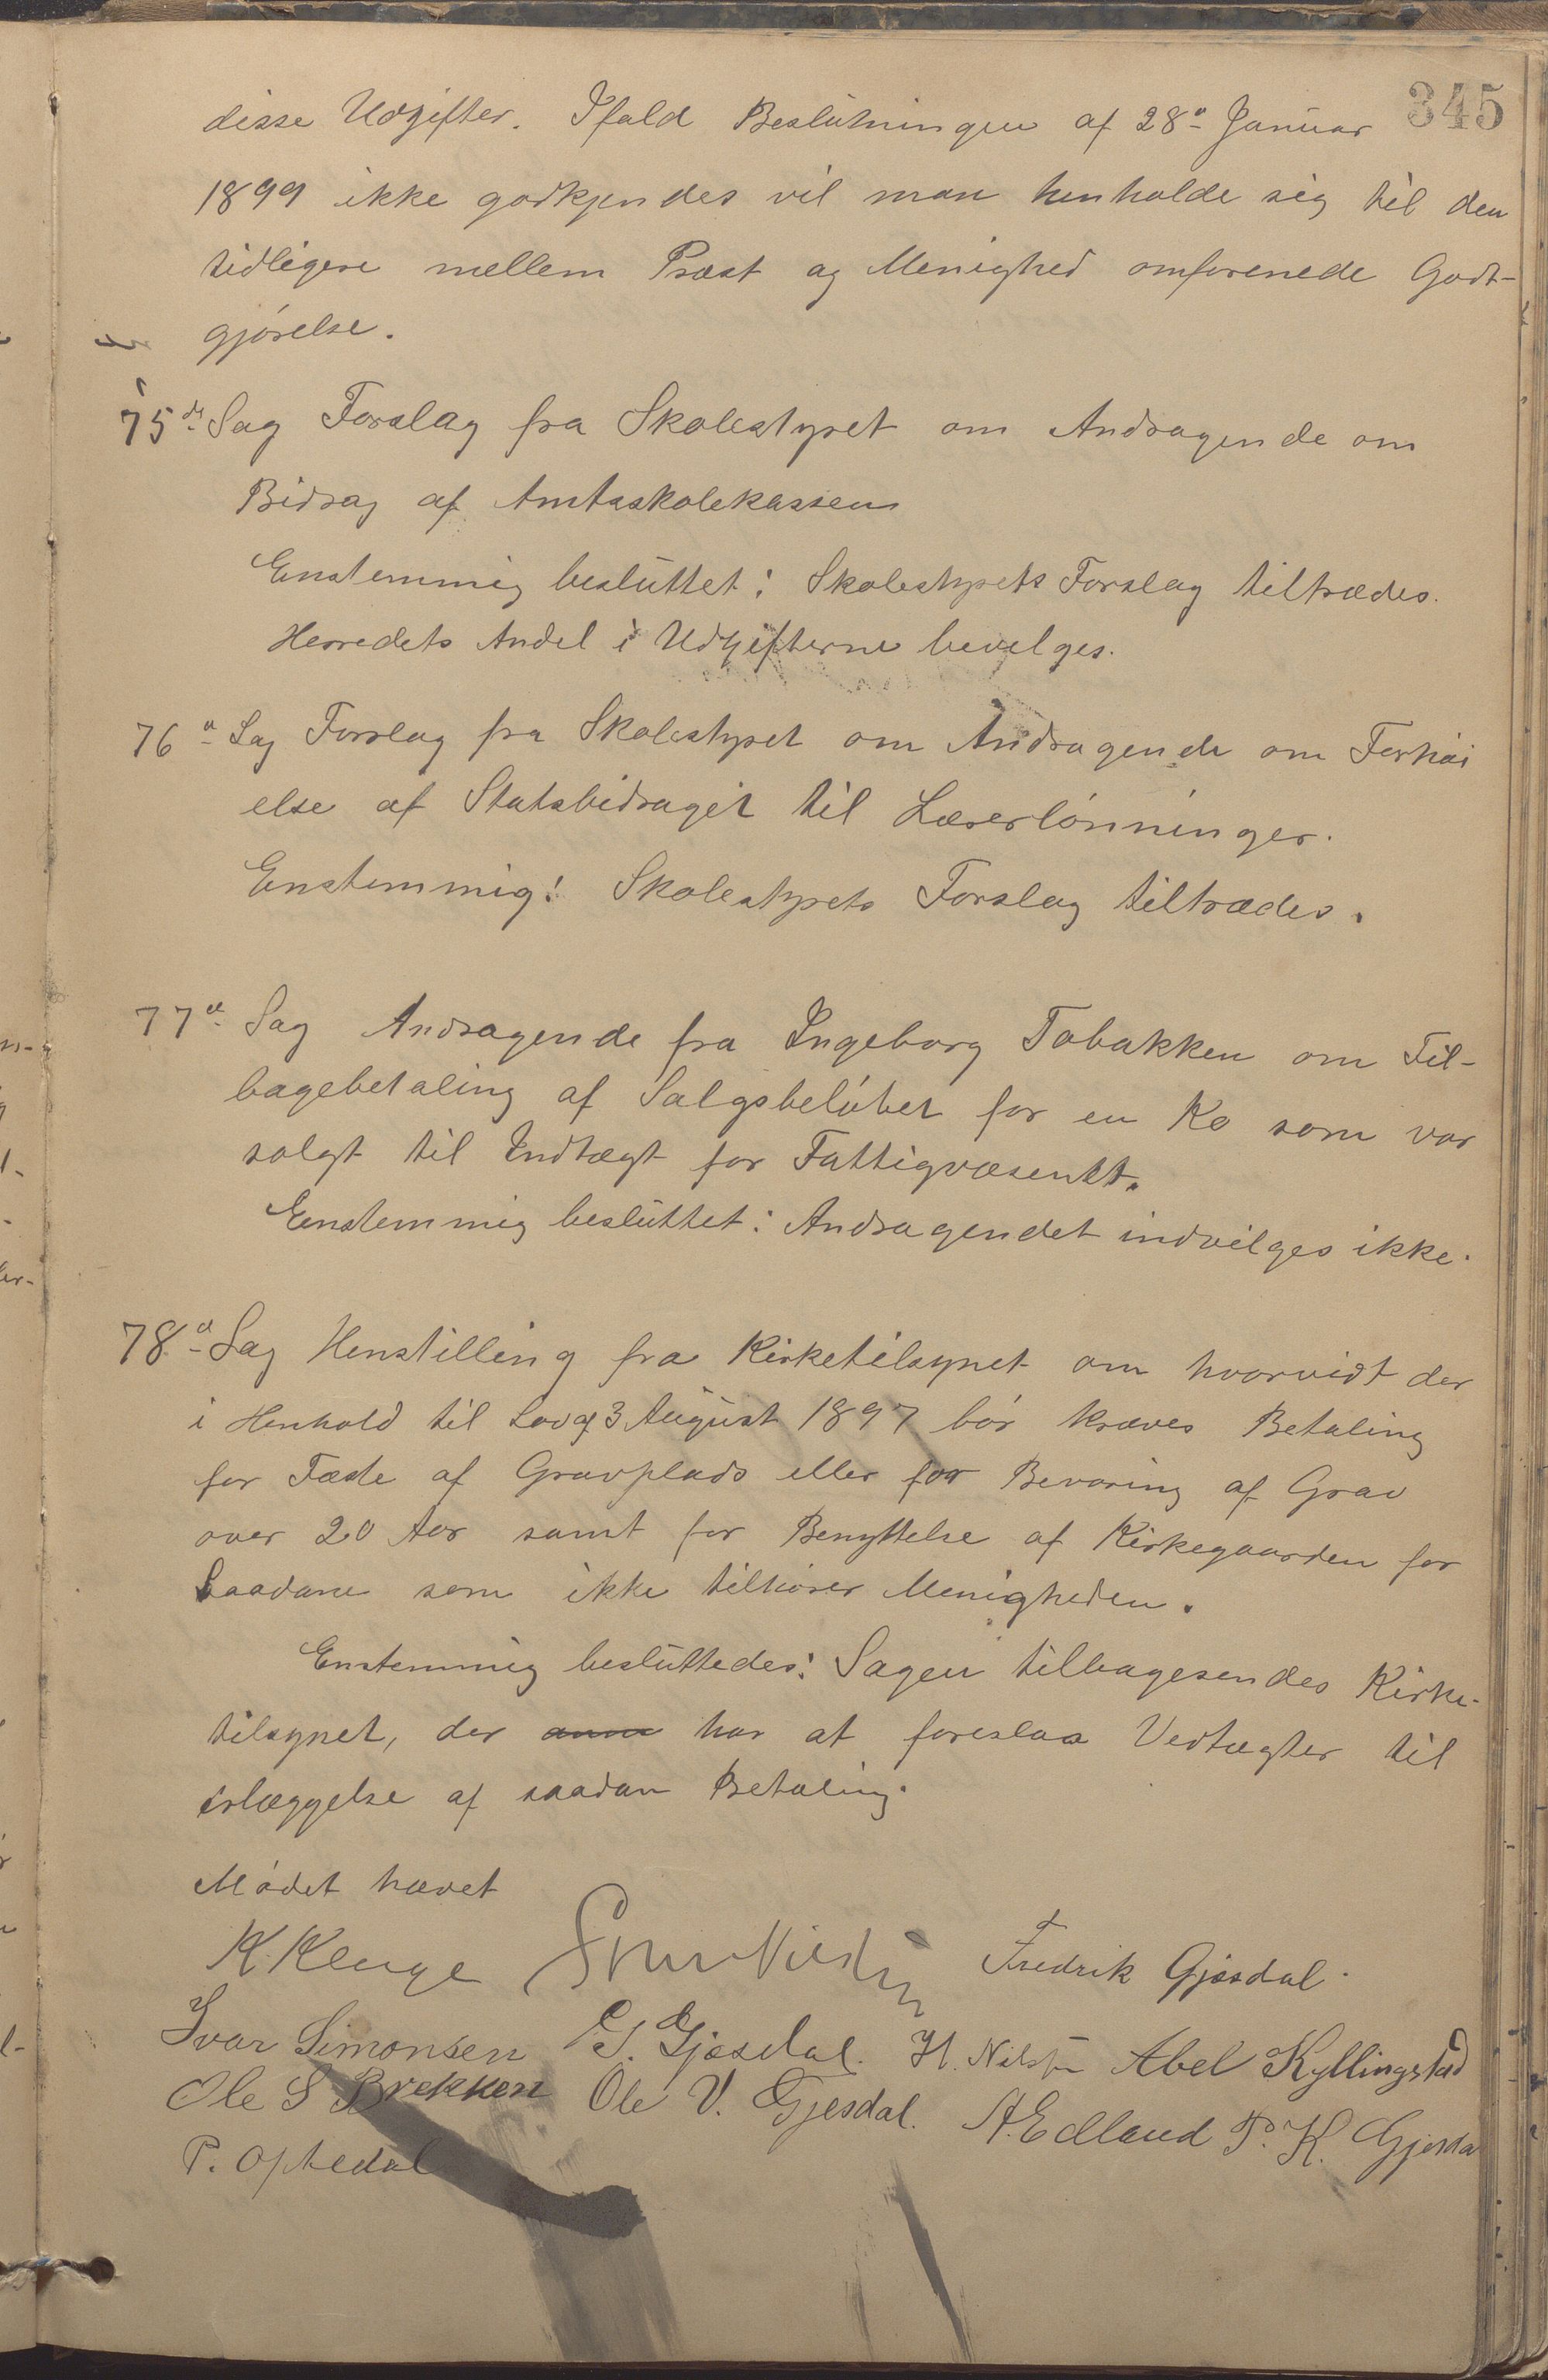 345
disse Udgifter. Ifald Beslutningen af 28de Januar
1899 ikke godkjendes vil man henholde sig til den
tidligere mellem Præst og Menighed omforenede Godt-
gjørelse.
75de Sag Forslag fra Skolestyret om Andragende om
Bidrag af Amtsskolekassen
Enstemmig besluttet: Skolestyrets Forslag tiltrædes.
Herredets Andel i Udgifterne bevilges.
76d Sag Forslag fra Skolestyret om Andragende om Forhøi
else af Statsbidraget til Lærerlønninger.
Enstemmig: Skolestyrets Forslag tiltrædes.
77d Sag Andragende fra Ingeborg Tobakken om Til-
bagebetaling af Salgsbeløbet for en Ko som var
solgt til Indtægt for Fattigvæsentt.
Enstemmig besluttet: Andragendet indvilges ikke.
78d Sag Henstilling fra Kirketilsynet om hvorvidt der
i Henhold til Lov af 3 August 1897 bør kræves Betaling
for Fæste af Gravplads eller for Bevaring af Grav
over 20 Aar samt for Benyttelse af Kirkegaarden for
Saadane som ikke tilhører Menigheden.
Enstemmig besluttedes: Sagen tilbagesendes Kirke-
tilsynet, der har at foreslaa Vedtægter til
erlæggelse af saadan Betaling.
Mødet hævet
K. Kluge Fredrik Gjesdal.
Ivar Simonsen G. Gjesdal. H. Abel Kyllingstad
Ole S Brekken Ole V. Gjesdal. A. Edland P. K. Gjesdal
P. Oftedal